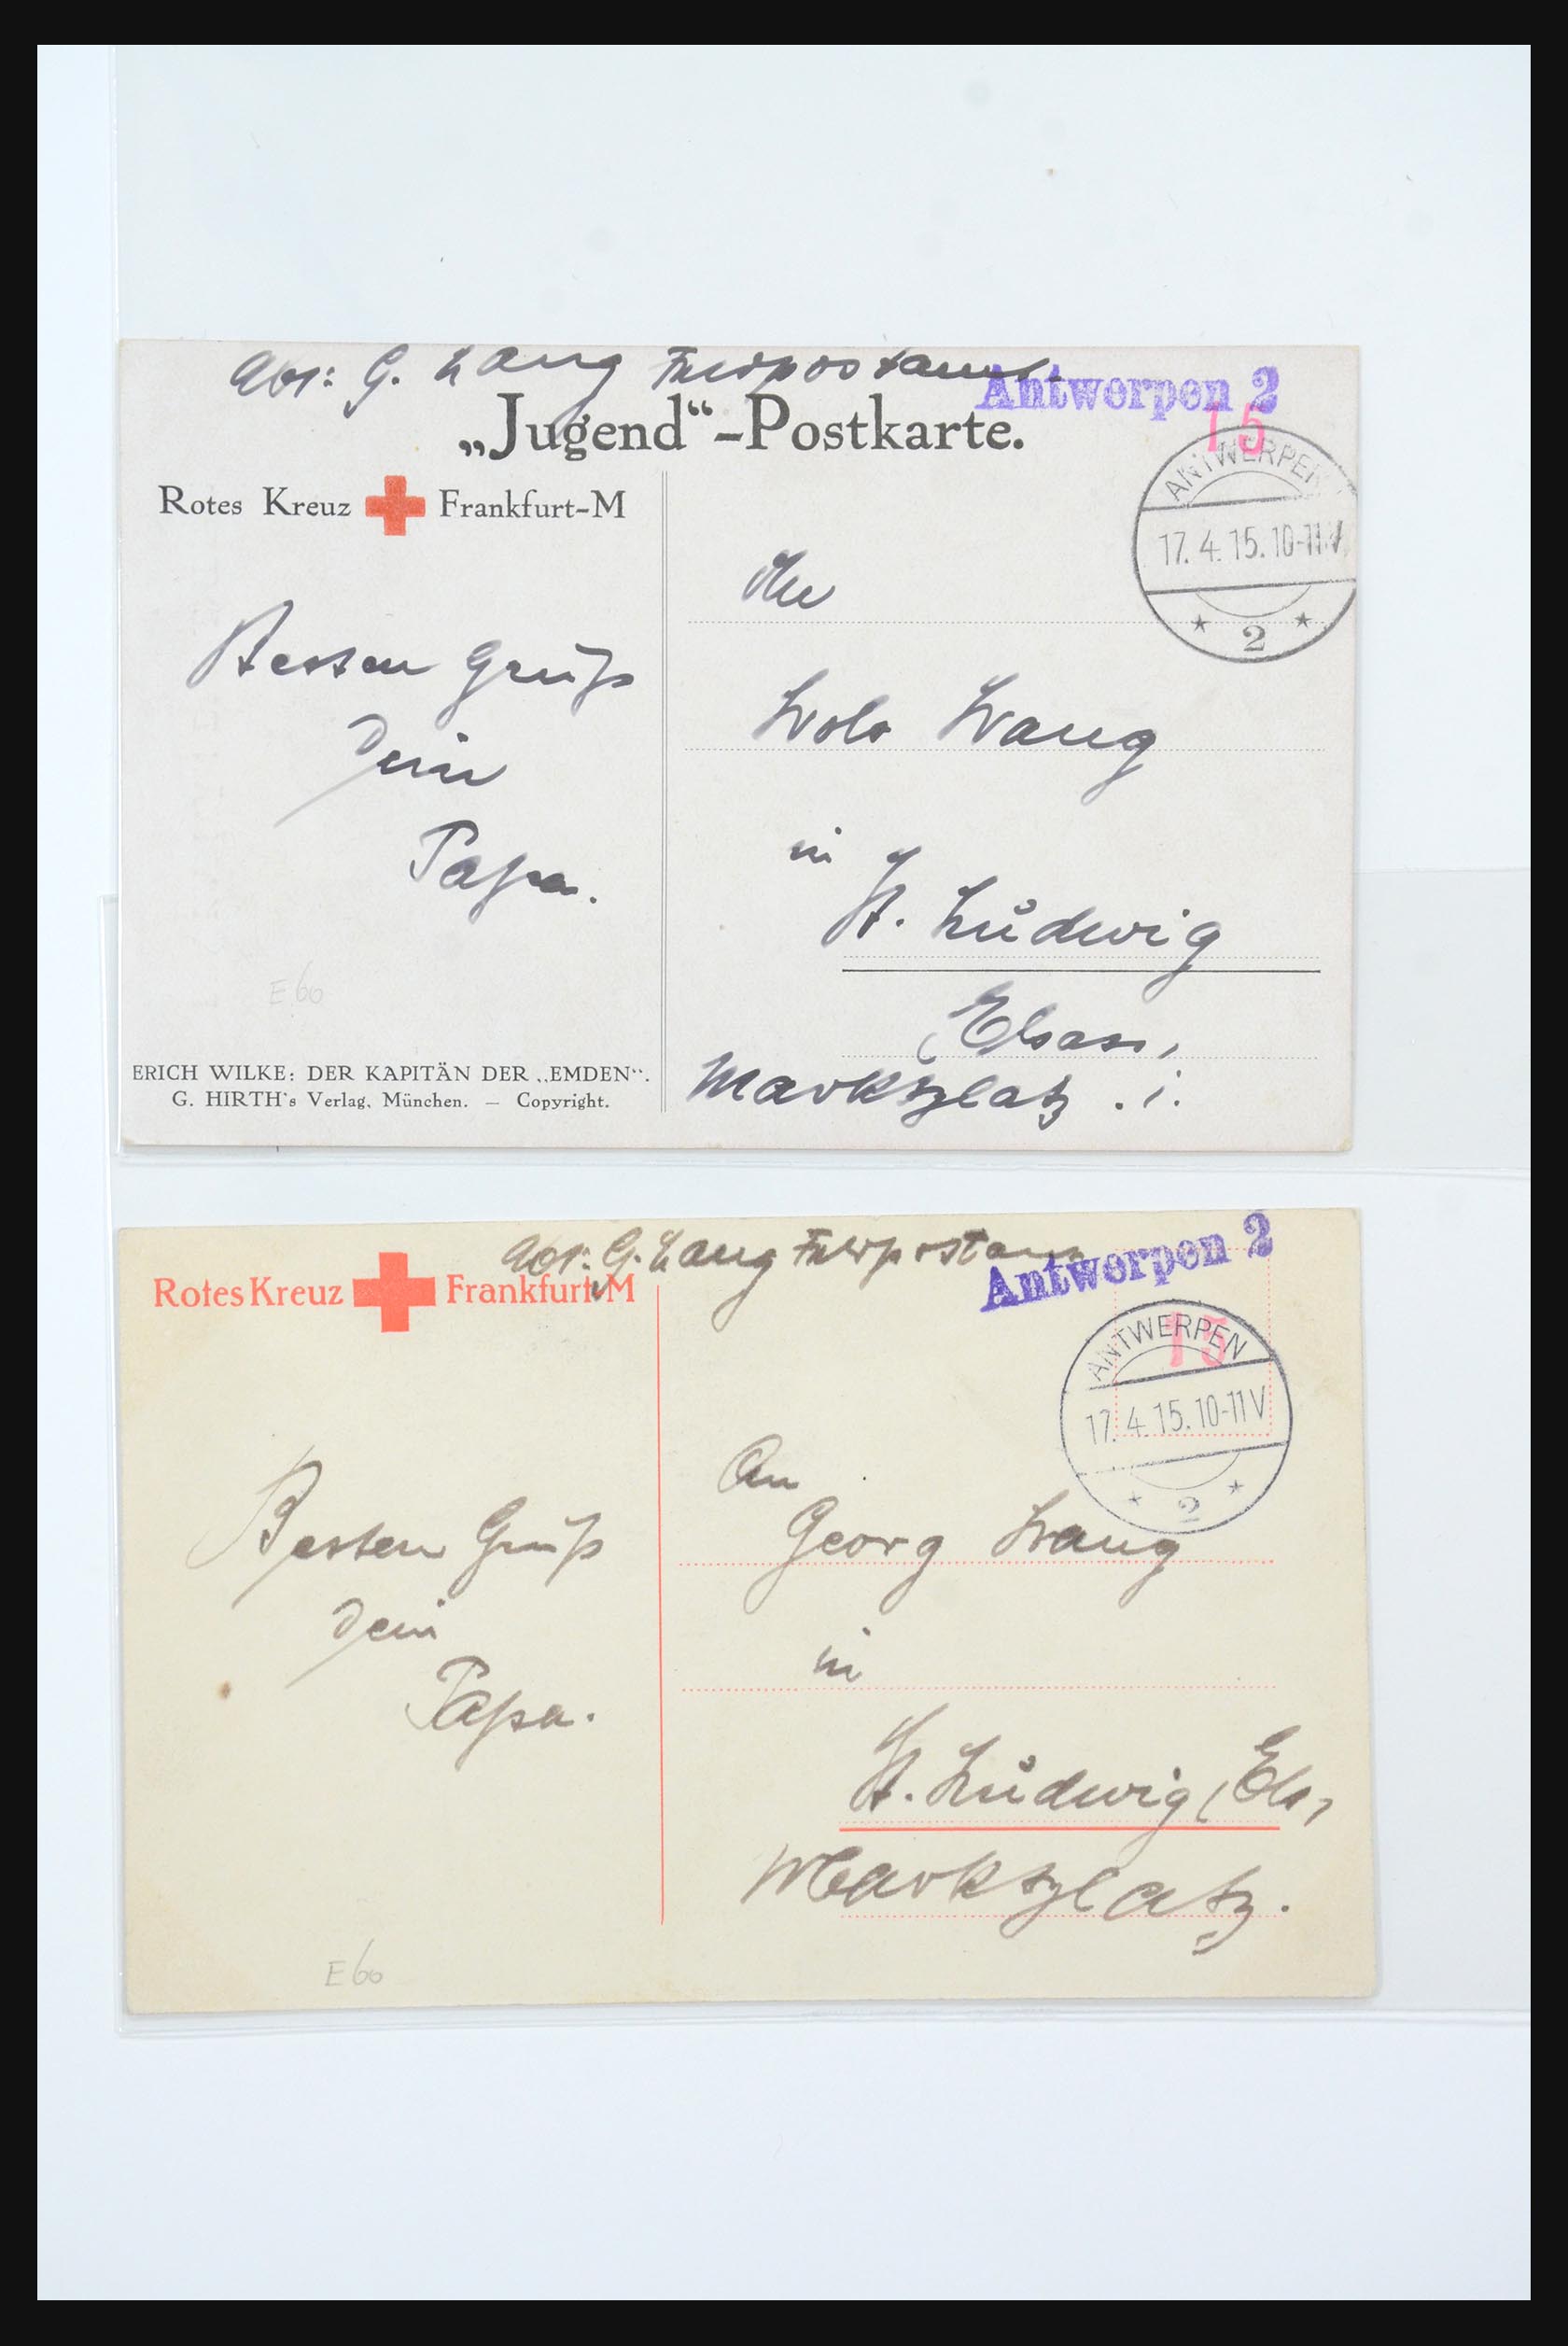 Abs: G. Lang Feldpostamt
Antwerpen 2
„Jugend“-Postkarte.
15
Rotes Kreuz Frankfurt-M
ANTWERPEN
17.4.15.10-11V
* 2 *
An
Besten Gruß
Dein
Papa.
Lang
in
St. Ludwig
Elsass,
Marktplatz
E 60
ERICH WILKE: DER KAPITÄN DER „EMDEN“.
G. HIRTH's Verlag, München. — Copyright.
Abs: G. Lang Feldpostamt
Antwerpen 2
Rotes Kreuz Frankfurt-M
15
ANTWERPEN
17.4.15.10-11V
* 2 *
An
Georg Lang
in
St. Ludwig, Els,
Marktplatz.
Besten Gruß
Dein
Papa.
E 60